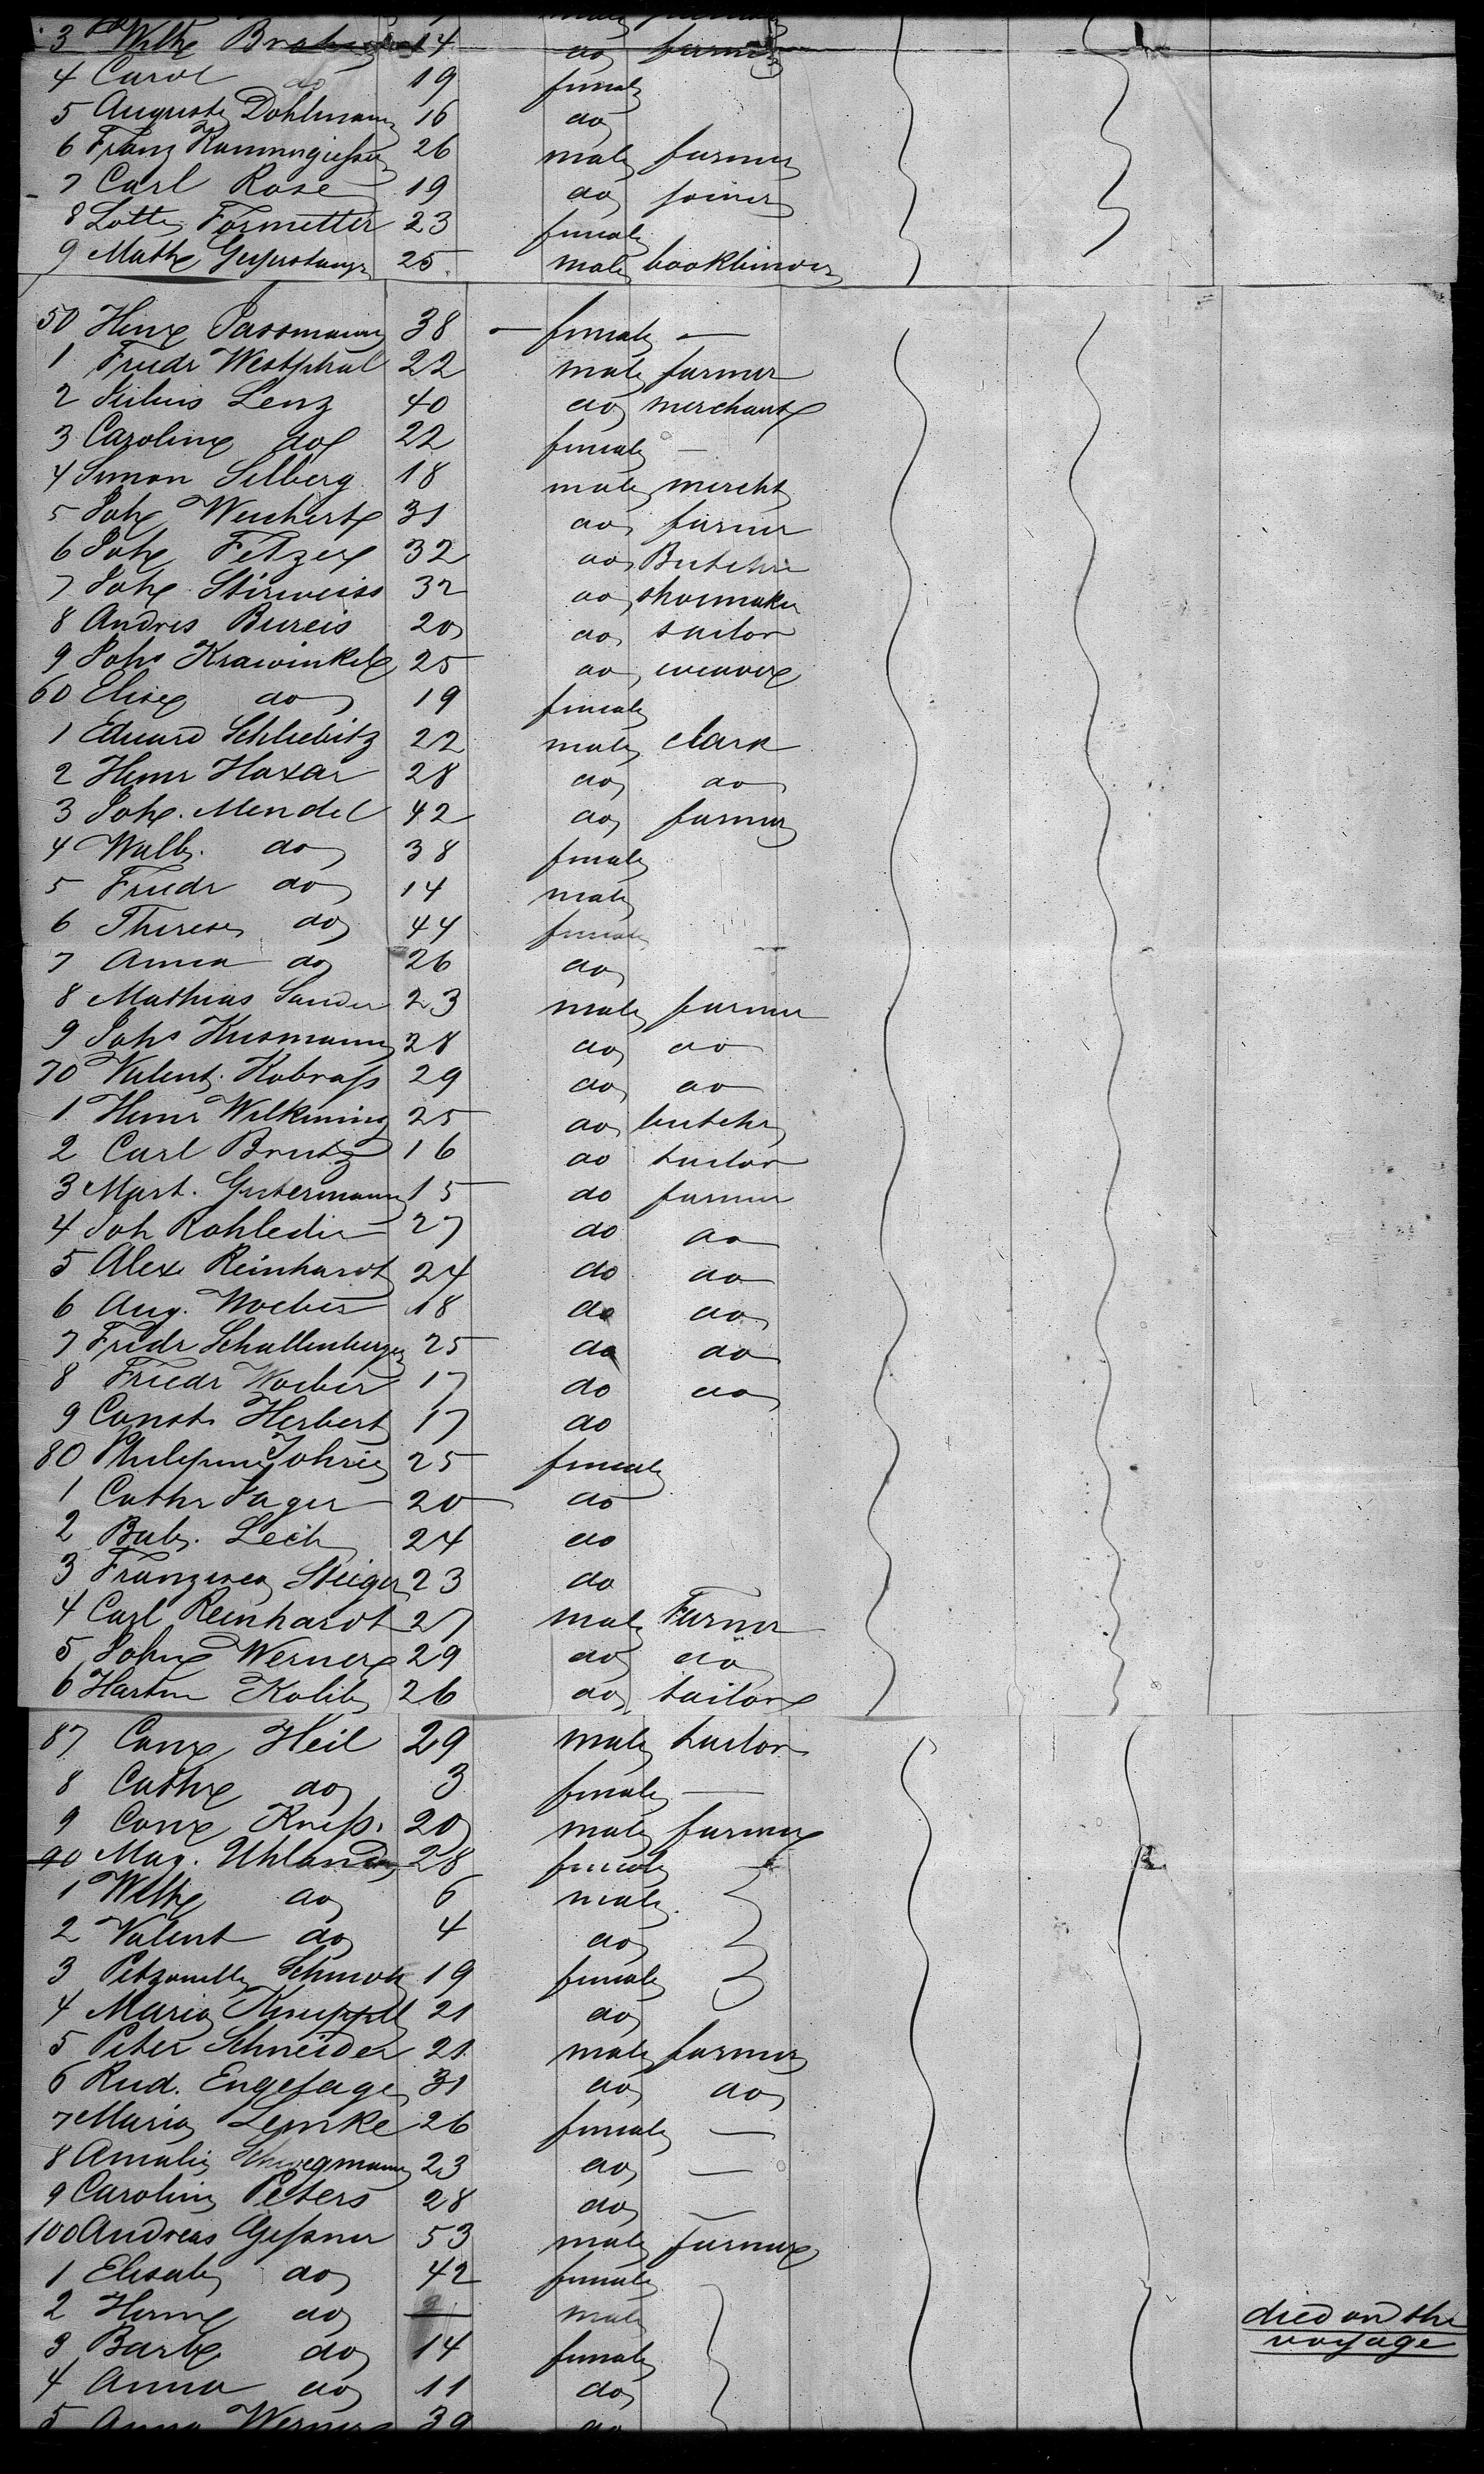 3 Wilh 14 do farmer
4 Carol do 19 female
5 Auguste Dohlmann 16 do
6 Franz Kammrgiesser 26 male farmer
7 Carl Rose 19 do joiner
8 Lotte Formetter 23 female
9 Math 25 male bookbinder
50 Hinr Passmann 38 — female —
1 Friedr Westphal 22 male farmer
2 Julius Lenz 40 do merchant
3 Caroline do 22 female —
4 Simon Silberg 18 male mercht
5 Joh Weichert 31 do farmer
6 Joh Fetzer 32 do Butcher
7 Joh Stirweiss 32 do shoemaker
8 Andres Bureis 20 do tailor
9 Johs Krawinkel 25 do weaver
60 Elise do 19 female
1 Eduard Schliebitz 22 male clark
2 Henr Haxar 28 do do
3 Joh. Mendel 42 do farmer
4 Walb. do 38 female
5 Friedr do 14 male
6 Therese do 44 female
7 Anna do 26 do
8 Mathias Sander 23 male farmer
9 Johs Kusmann 28 do do
70 Valent. Kobrass 29 do do
1 Henr Wilkening 25 do butcher
2 Carl Brutz 16 do tailor
3 Mart. Gutermann 15 do farmer
4 Joh Rohleder 27 do do
5 Alex Reinhardt 24 do do
6 Aug. Woeber 18 do do
7 Fredr Schallenberger 25 do do
8 Friedr Woeber 17 do do
9 Const. Herbert 17 do
80 Philippine Johrie 25 female
1 Cathr Jager 20 do
2 Bab. Lech 24 do
3 Franzisca Steiger 23 do
4 Carl Reinhardt 27 male Farmer
5 John Werner 29 do do
6 Hartm Kolib 26 do tailor
87 Conr Heil 29 male tailor
8 Cathr do 3 female —
9 Conr Kneiss. 20 male farmer
90 Mag. Uhland 28 female —
1 Wilh do 6 male
2 Valent do 4 do
3 Petronella Schmott 19 female
4 Maria Knuppel 21 do
5 Peter Schneider 21 male farmer
6 Rud. Engelage 31 do do
7 Maria Lemke 26 female —
8 Amalie 23 do —
9 Caroline Peters 28 do —
100 Andreas Gessner 53 male farmer
1 Elisab do 42 female
2 Herm do male died on the
voyage
3 Barb do 14 female
4 Anna do 11 do
5 Anna Werner 39 do